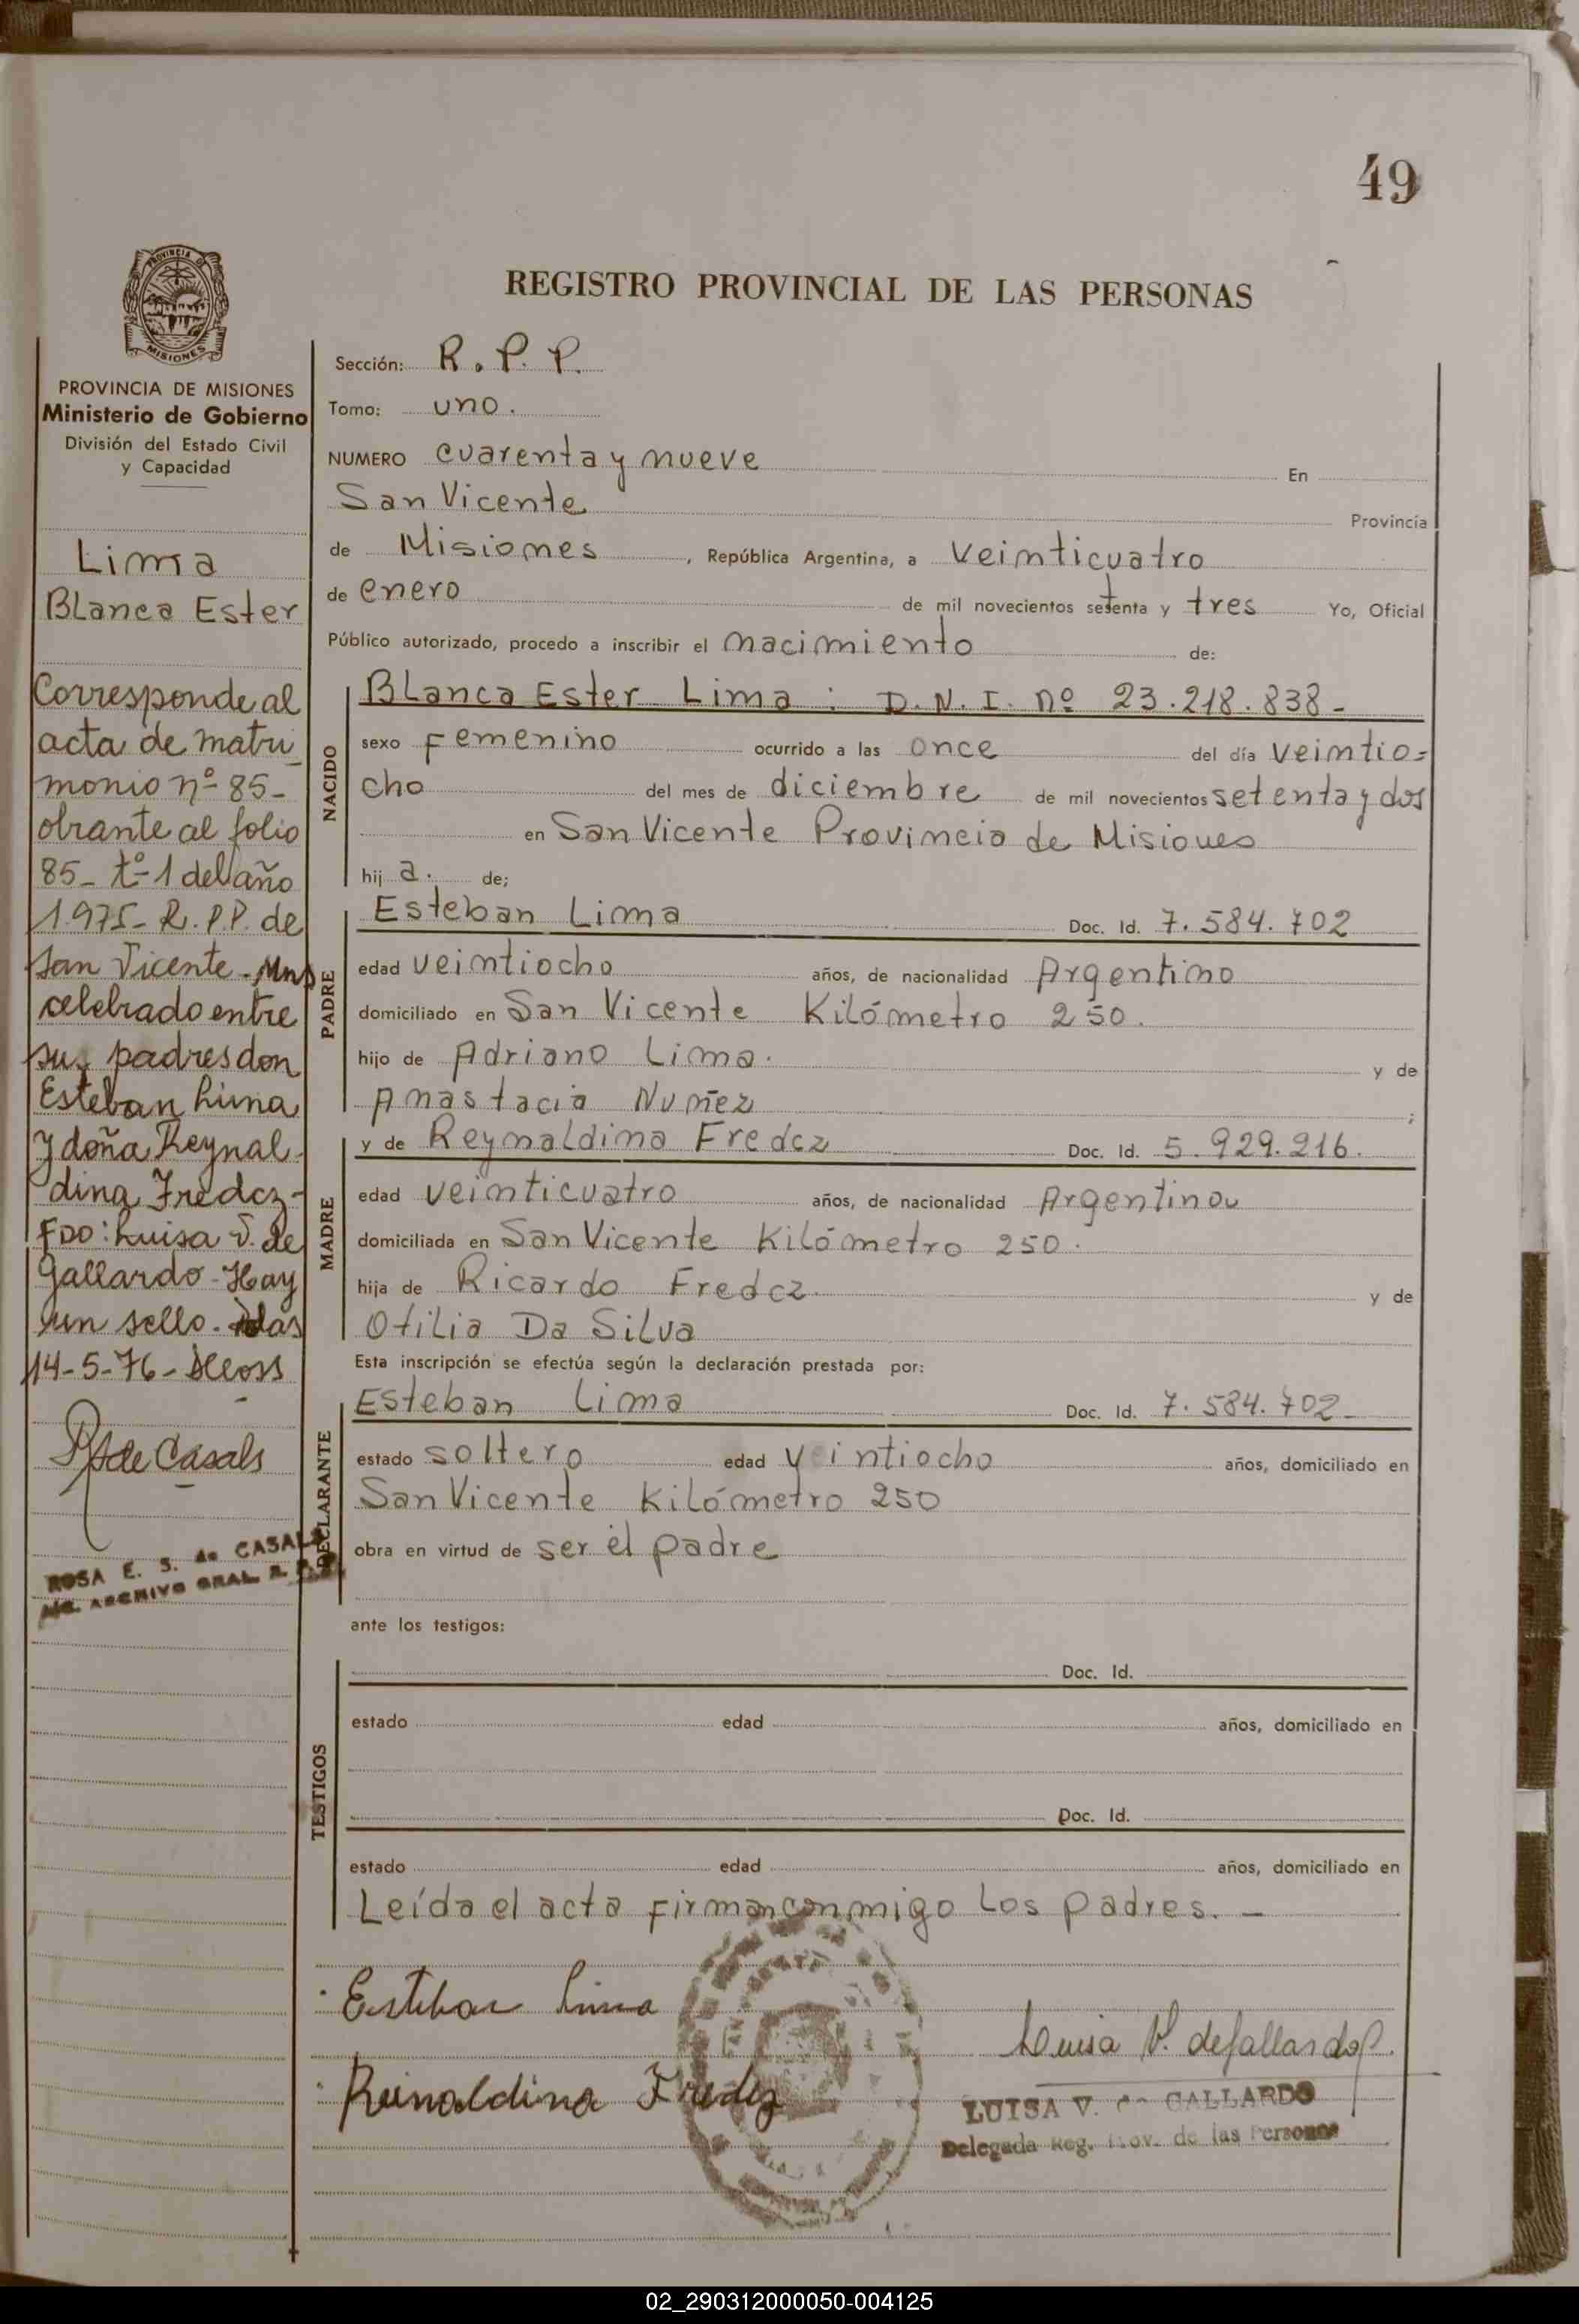 49
PROVINCIA DE
MISIONES
PROVINCIA DE MISIONES
Ministerio de Gobierno
División del Estado Civil
y Capacidad
Lima
Blanca Ester
Corresponde al
acta de matri
monio nº 85-
obrante al folio
85- tº-1 del año
1.975- R.P.P. de
San Vicente - Mns
celebrado entre
sus padres don
Esteban Lima
y doña Reynal-
dina Fredcz-
FDO: Luisa V. de
Gallardo - Hay
un sello.
14-5-76-
de Casals
ROSA E. S. de CASALS
ARCHIVO GRAL R.
REGISTRO PROVINCIAL DE LAS PERSONAS
Sección: R.P.P.
Tomo: uno.
NUMERO cuarenta y nueve En
San Vicente Provincia
de Misiones, República Argentina, a veinticuatro
de enero de mil novecientos setenta y tres Yo, Oficial
Público autorizado, procedo a inscribir el nacimiento de:
NACIDO
Blanca Ester Lima : D.N.I. nº 23.218.838-
sexo Femenino ocurrido a las once del día veintio=
cho del mes de diciembre de mil novecientos setenta y dos
en San Vicente Provincia de Misiones
hij a. de;
PADRE
Esteban Lima Doc. Id. 7.584.702
edad veintiocho años, de nacionalidad Argentino
domiciliado en San Vicente Kilómetro 250.
hijo de Adriano Lima. y de
Anastacia Nuñez ;
MADRE
y de Reynaldina Fredcz Doc. Id. 5.929.216.
edad veinticuatro años, de nacionalidad Argentina
domiciliada en San Vicente Kilómetro 250.
hija de Ricardo Fredcz y de
Otilia Da Silva
Esta inscripción se efectúa según la declaración prestada por:
DECLARANTE
Esteban Lima Doc. Id. 7.584.702-
estado soltero edad veintiocho años, domiciliado en
San Vicente Kilómetro 250
obra en virtud de ser el padre
ante los testigos:
TESTIGOS
Doc. Id.
estado edad años, domiciliado en
Doc. Id.
estado edad años, domiciliado en
Leída el acta firman conmigo los padres. -
Esteban Lima
Reinaldina Fredcz
Luisa V. de Gallardo
LUISA V. de GALLARDO
Delegada Reg. Prov. de las Personas
02_290312000050-004125